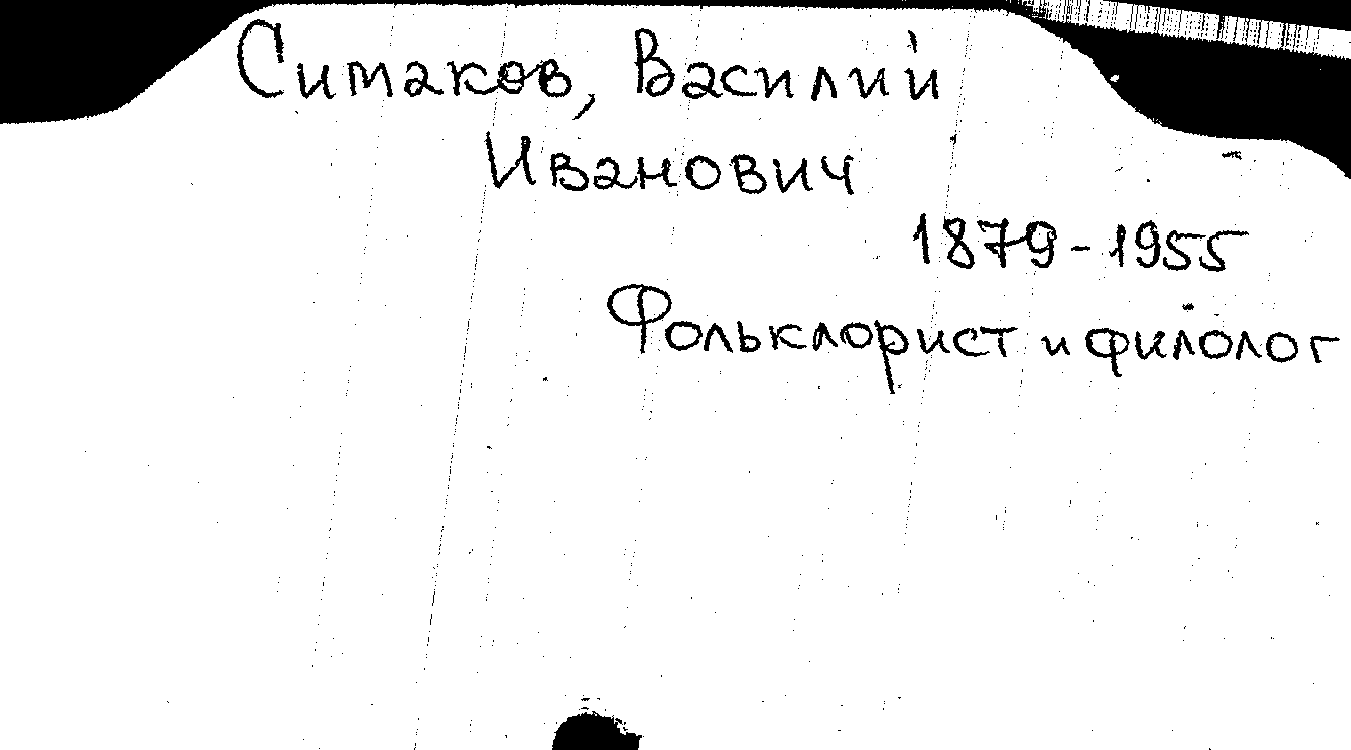 Симаков, Василий
Иванович
1879-1955
Фольклорист и филолог